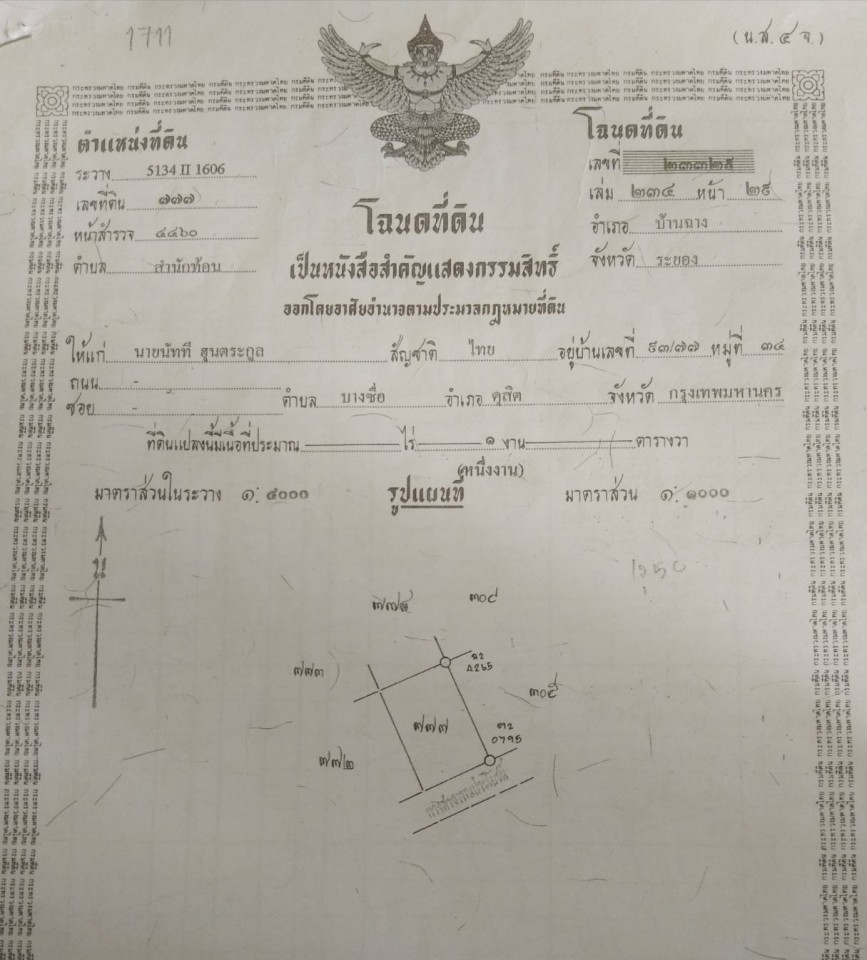 1711
(น.ส. ๔ จ.)
ตำแหน่งที่ดิน
ระวาง 5134 II 1606
เลขที่ดิน ๗๗๗
หน้าสำรวจ ๔๔๖๐
ตำบล สำนักท้อน
โฉนดที่ดิน
เลขที่ ๒๓๓๒๕
เล่ม ๒๓๔ หน้า ๒๕
อำเภอ บ้านฉาง
จังหวัด ระยอง
โฉนดที่ดิน
เป็นหนังสือสำคัญแสดงกรรมสิทธิ์
ออกโดยอาศัยอำนาจตามประมวลกฎหมายที่ดิน
ให้แก่ นายนัทที สุนตระกูล สัญชาติ ไทย อยู่บ้านเลขที่ ๕๓/๗๗ หมู่ที่ ๓๔
ถนน -
ซอย - ตำบล บางซื่อ อำเภอ ดุสิต จังหวัด กรุงเทพมหานคร
ที่ดินแปลงนี้มีเนื้อที่ประมาณ ไร่ ๑ งาน ตารางวา
(หนึ่งงาน)
มาตราส่วนในระวาง ๑ : ๔๐๐๐ รูปแผนที่ มาตราส่วน ๑ : ๑๐๐๐
น
๓๐๔
๗๗๓
๓๐๕
๗๗๗
0795
๗๗๒